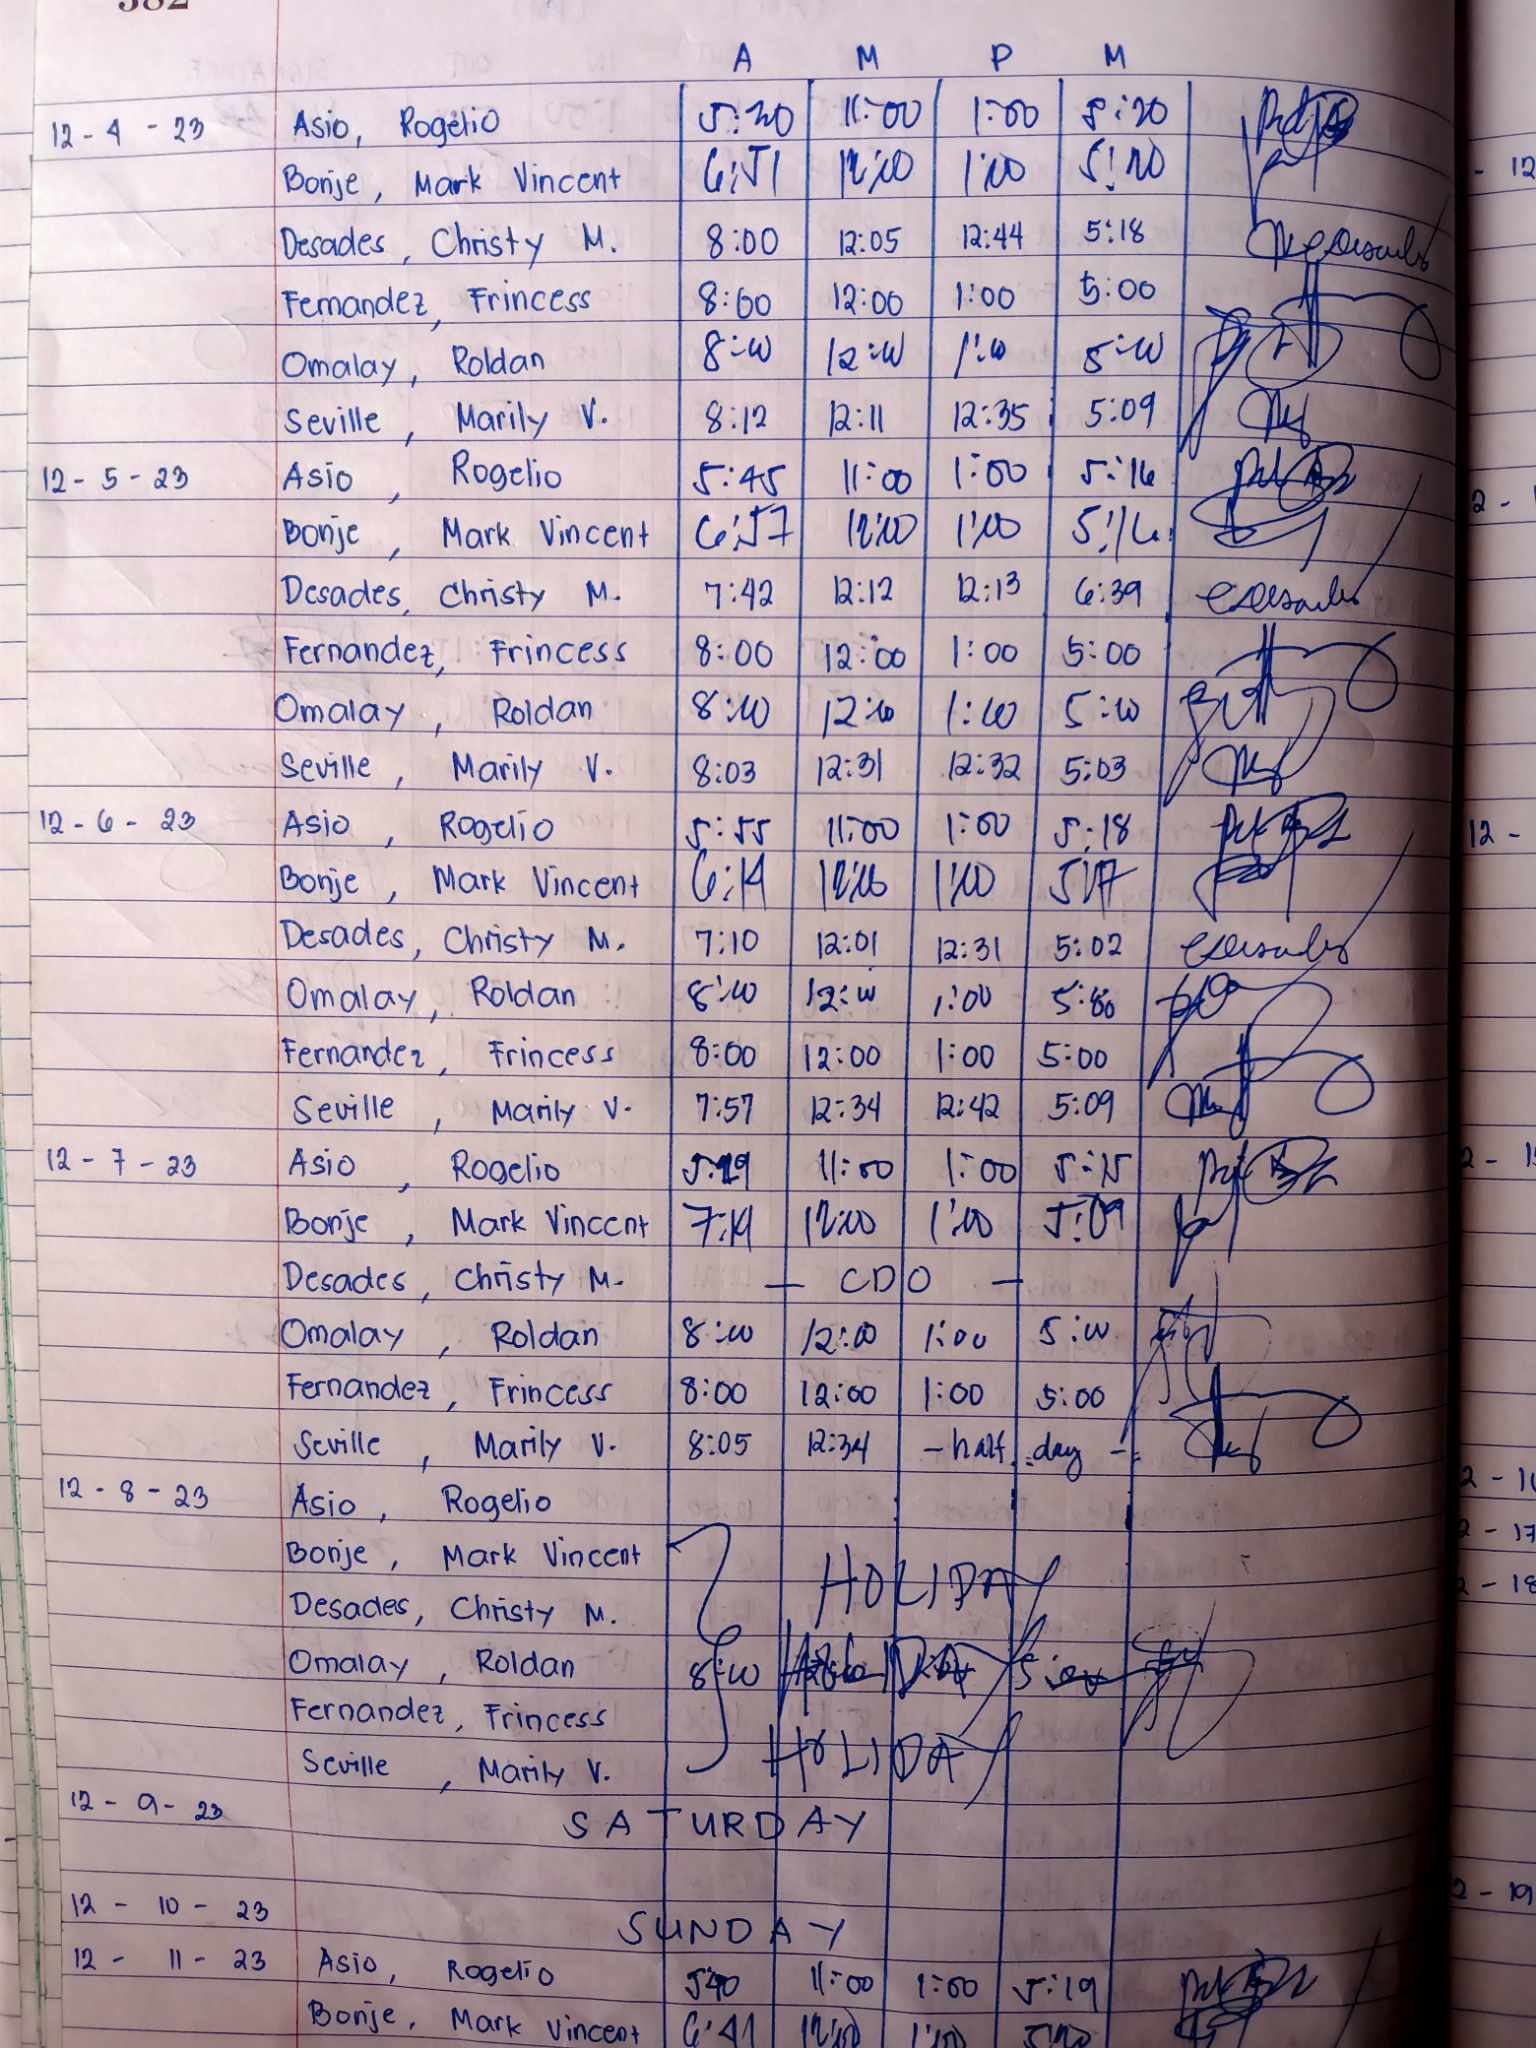 382
A M P M
12-4-23 Asio, Rogelio 5:20 11:00 1:00 5:20
Bonje, Mark Vincent 6:51 12:00 1:00 5:20
Desades, Christy M. 8:00 12:05 12:44 5:18
Fernandez, Frincess 8:00 12:00 1:00 5:00
Omalay, Roldan 8:00 12:00 1:00 5:00
Seville, Marily V. 8:12 12:11 12:35 5:09
12-5-23 Asio, Rogelio 5:45 11:00 1:00 5:16
Bonje, Mark Vincent 6:57 12:00 1:00 5:16
Desades, Christy M. 7:42 12:12 12:13 6:39
Fernandez, Frincess 8:00 12:00 1:00 5:00
Omalay, Roldan 8:00 12:00 1:00 5:00
Seville, Marily V. 8:03 12:31 12:32 5:03
12-6-23 Asio, Rogelio 5:55 11:00 1:00 5:18
Bonje, Mark Vincent 6:14 12:00 1:00 5:17
Desades, Christy M. 7:10 12:01 12:31 5:02
Omalay, Roldan 8:00 12:00 1:00
Fernandez, Frincess 8:00 12:00 1:00 5:00
Seville, Marily V. 7:57 12:34 12:42 5:09
12-7-23 Asio, Rogelio 11:00 1:00 5:15
Bonje, Mark Vincent 7:14 12:00 1:00 5:09
Desades, Christy M. - CDO -
Omalay, Roldan 8:00 12:00 1:00 5:00
Fernandez, Frincess 8:00 12:00 1:00 5:00
Seville, Marily V. 8:05 12:34 - half day -
12-8-23 Asio, Rogelio
Bonje, Mark Vincent
HOLIDAY
Desades, Christy M.
Omalay, Roldan 8:00
Fernandez, Frincess
Seville, Marily V. HOLIDAY
12-9-23 SATURDAY
12-10-23 SUNDAY
12-11-23 Asio, Rogelio 5:40 11:00 1:00 5:19
Bonje, Mark Vincent 6:41 12:00 1:00 5:20